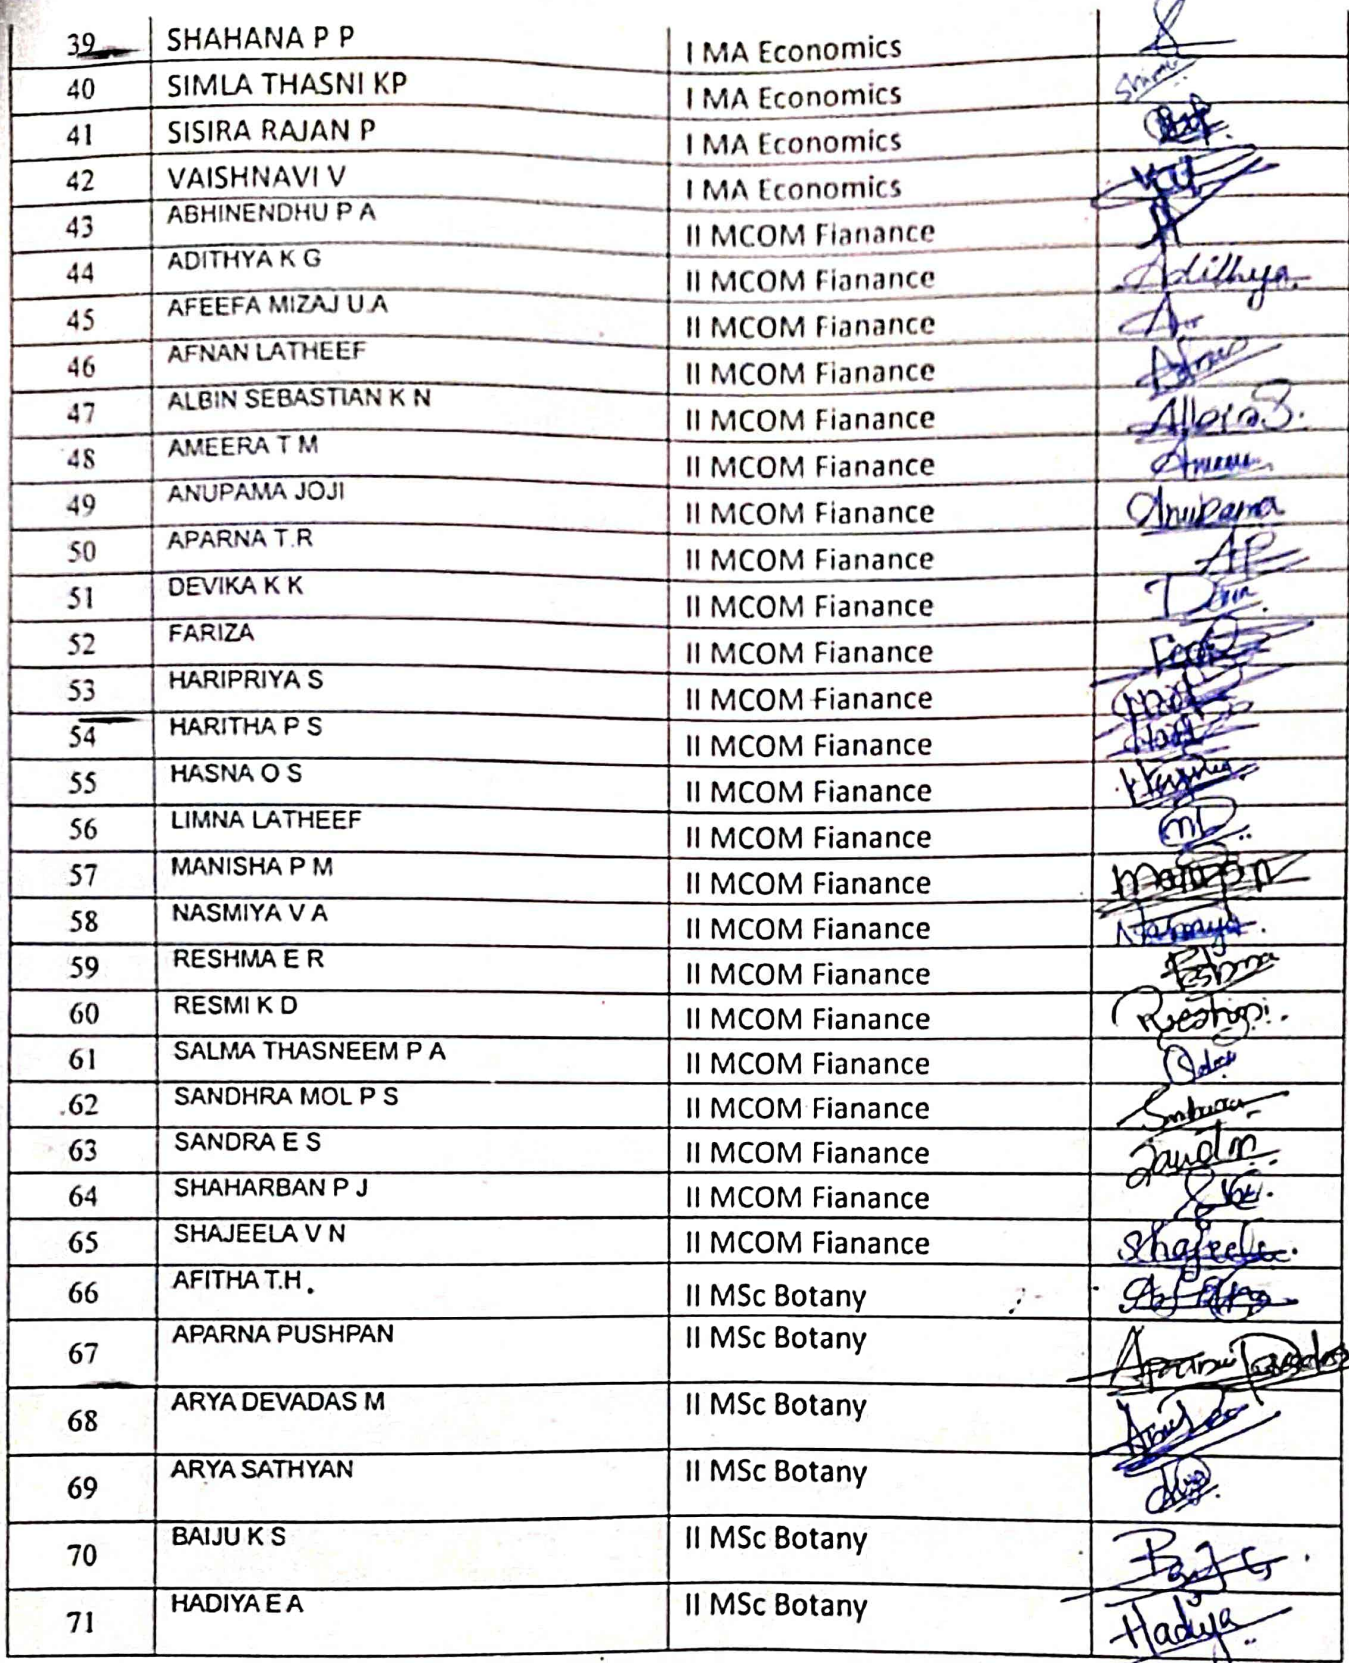 39 SHAHANA P P I MA Economics
40 SIMLA THASNI KP I MA Economics
41 SISIRA RAJAN P I MA Economics
42 VAISHNAVI V I MA Economics
43 ABHINENDHU P A II MCOM Fianance
44 ADITHYA K G II MCOM Fianance Adithya
45 AFEEFA MIZAJ U.A II MCOM Fianance
46 AFNAN LATHEEF II MCOM Fianance
47 ALBIN SEBASTIAN K N II MCOM Fianance
48 AMEERA T M II MCOM Fianance
49 ANUPAMA JOJI II MCOM Fianance Anupama
50 APARNA T.R II MCOM Fianance AP
51 DEVIKA K K II MCOM Fianance
52 FARIZA II MCOM Fianance
53 HARIPRIYA S II MCOM Fianance
54 HARITHA P S II MCOM Fianance
55 HASNA O S II MCOM Fianance
56 LIMNA LATHEEF II MCOM Fianance
57 MANISHA P M II MCOM Fianance
58 NASMIYA V A II MCOM Fianance
59 RESHMA E R II MCOM Fianance
60 RESMI K D II MCOM Fianance
61 SALMA THASNEEM P A II MCOM Fianance
62 SANDHRA MOL P S II MCOM Fianance
63 SANDRA E S II MCOM Fianance
64 SHAHARBAN P J II MCOM Fianance
65 SHAJEELA V N II MCOM Fianance Shajeela
66 AFITHA T.H. II MSc Botany
67 APARNA PUSHPAN II MSc Botany
68 ARYA DEVADAS M II MSc Botany
69 ARYA SATHYAN II MSc Botany
70 BAIJU K S II MSc Botany
71 HADIYA E A II MSc Botany Hadiya